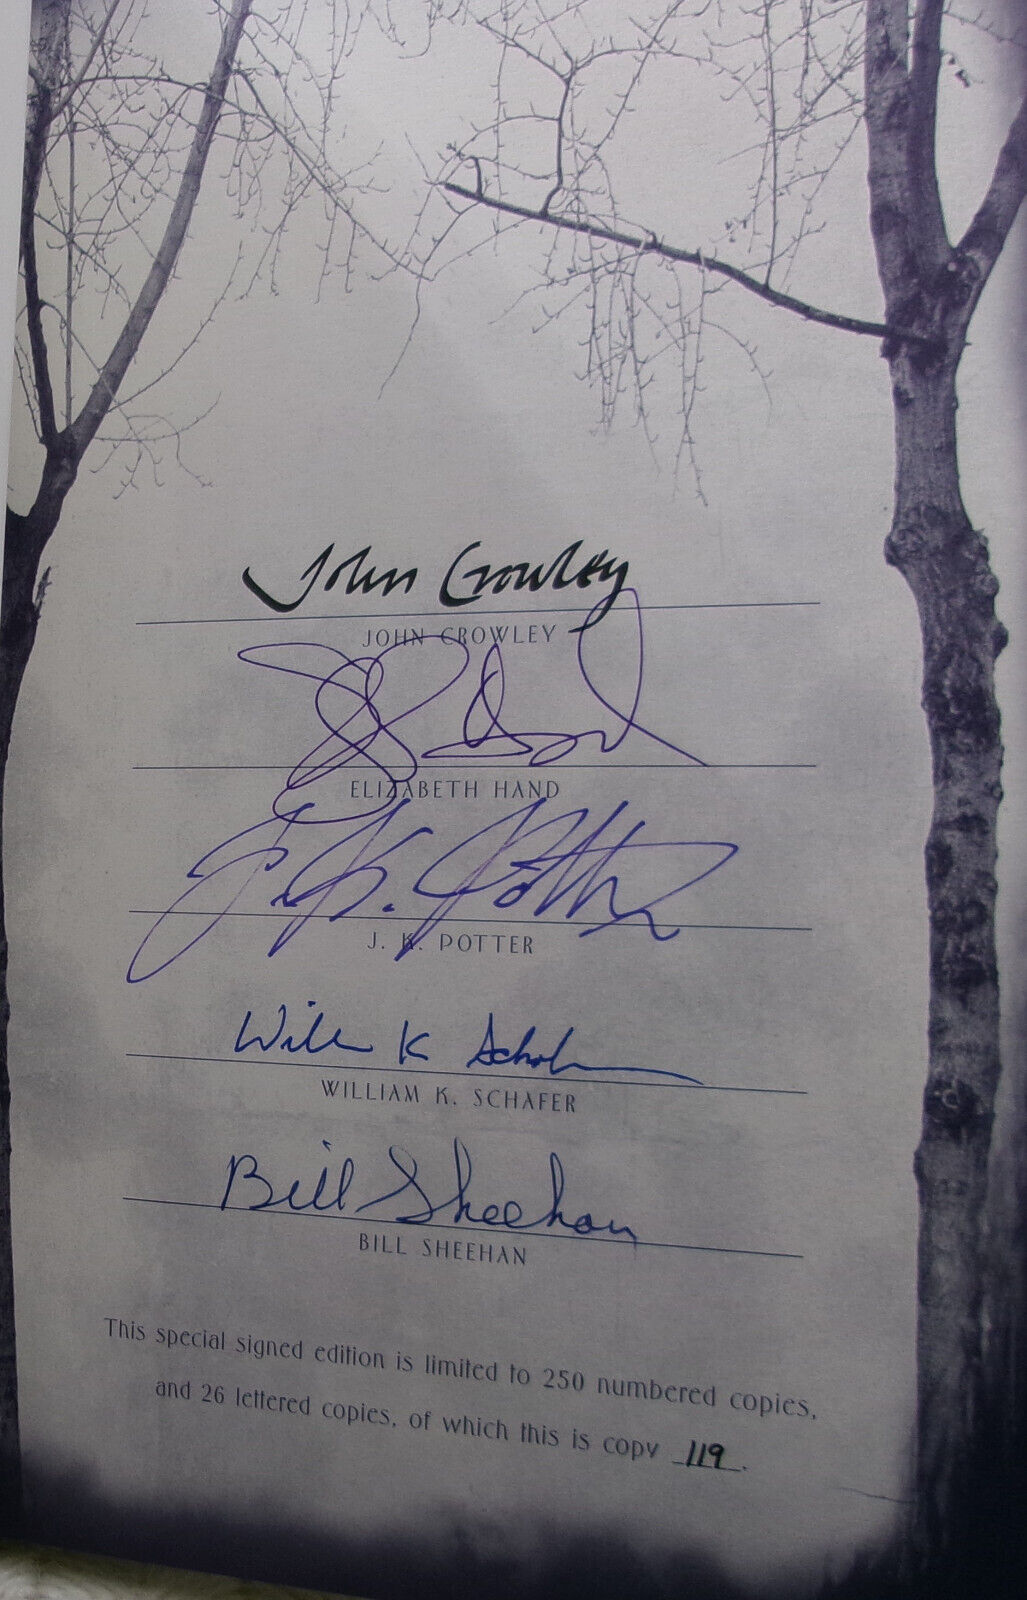 John Crowley
JOHN CROWLEY
ELIZABETH HAND
J. K. Potter
J. K. POTTER
William K Schafer
WILLIAM K. SCHAFER
Bill Sheehan
BILL SHEEHAN
This special signed edition is limited to 250 numbered copies,
and 26 lettered copies, of which this is copy 119.